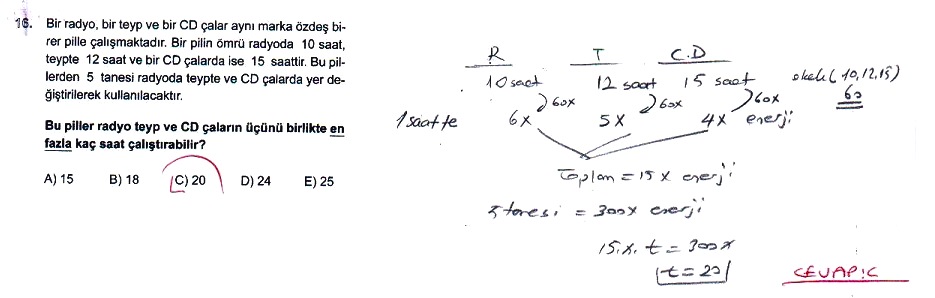 16. Bir radyo, bir teyp ve bir CD çalar aynı marka özdeş bi-
rer pille çalışmaktadır. Bir pilin ömrü radyoda 10 saat,
teypte 12 saat ve bir CD çalarda ise 15 saattir. Bu pil-
lerden 5 tanesi radyoda teypte ve CD çalarda yer de-
ğiştirilerek kullanılacaktır.
Bu piller radyo teyp ve CD çaların üçünü birlikte en
fazla kaç saat çalıştırabilir?
A) 15 B) 18 C) 20 D) 24 E) 25
R T C.D
10 saat 12 saat 15 saat okek (10,12,15)
60x 60x 60x 60
1 saatte 6x 5x 4x enerji
Toplam = 15 x enerji
5 tanesi = 300x enerji
15.x. t = 300x
t = 20
CEVAP:C